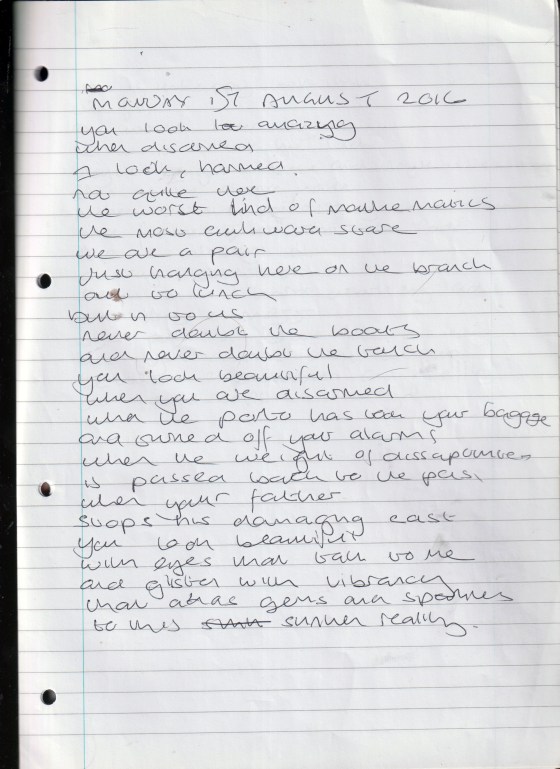 MONDAY 1ST AUGUST 2016
you look amazing
when disarmed
I look, harmed.
not quite here
the worst kind of mathematics
the most awkward stare
we are a pair
Just hanging here on the branch
out to lunch
but it to us
never doubt the boots
and never doubt the
you look beautiful
when you are disarmed
when the porter has took your baggage
and turned off your alarms
when the weight of
is passed back to the past
when your father
stops his damaging east
you look beautiful
with eyes that talk to me
and glisten with vibrancy
that gems and
to this summer reality.